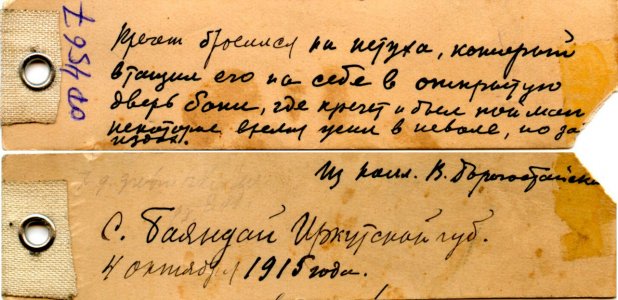 Z 954 до
Кречет бросился на петуха, который
втащил его на себе в открытую
дверь бани, где кречет и был пойман
некоторое время жил в неволе, но за
издох.
Из колл. В. Бороostaйск
С. Баяндай Иркутской губ.
4 октября 1915 года.